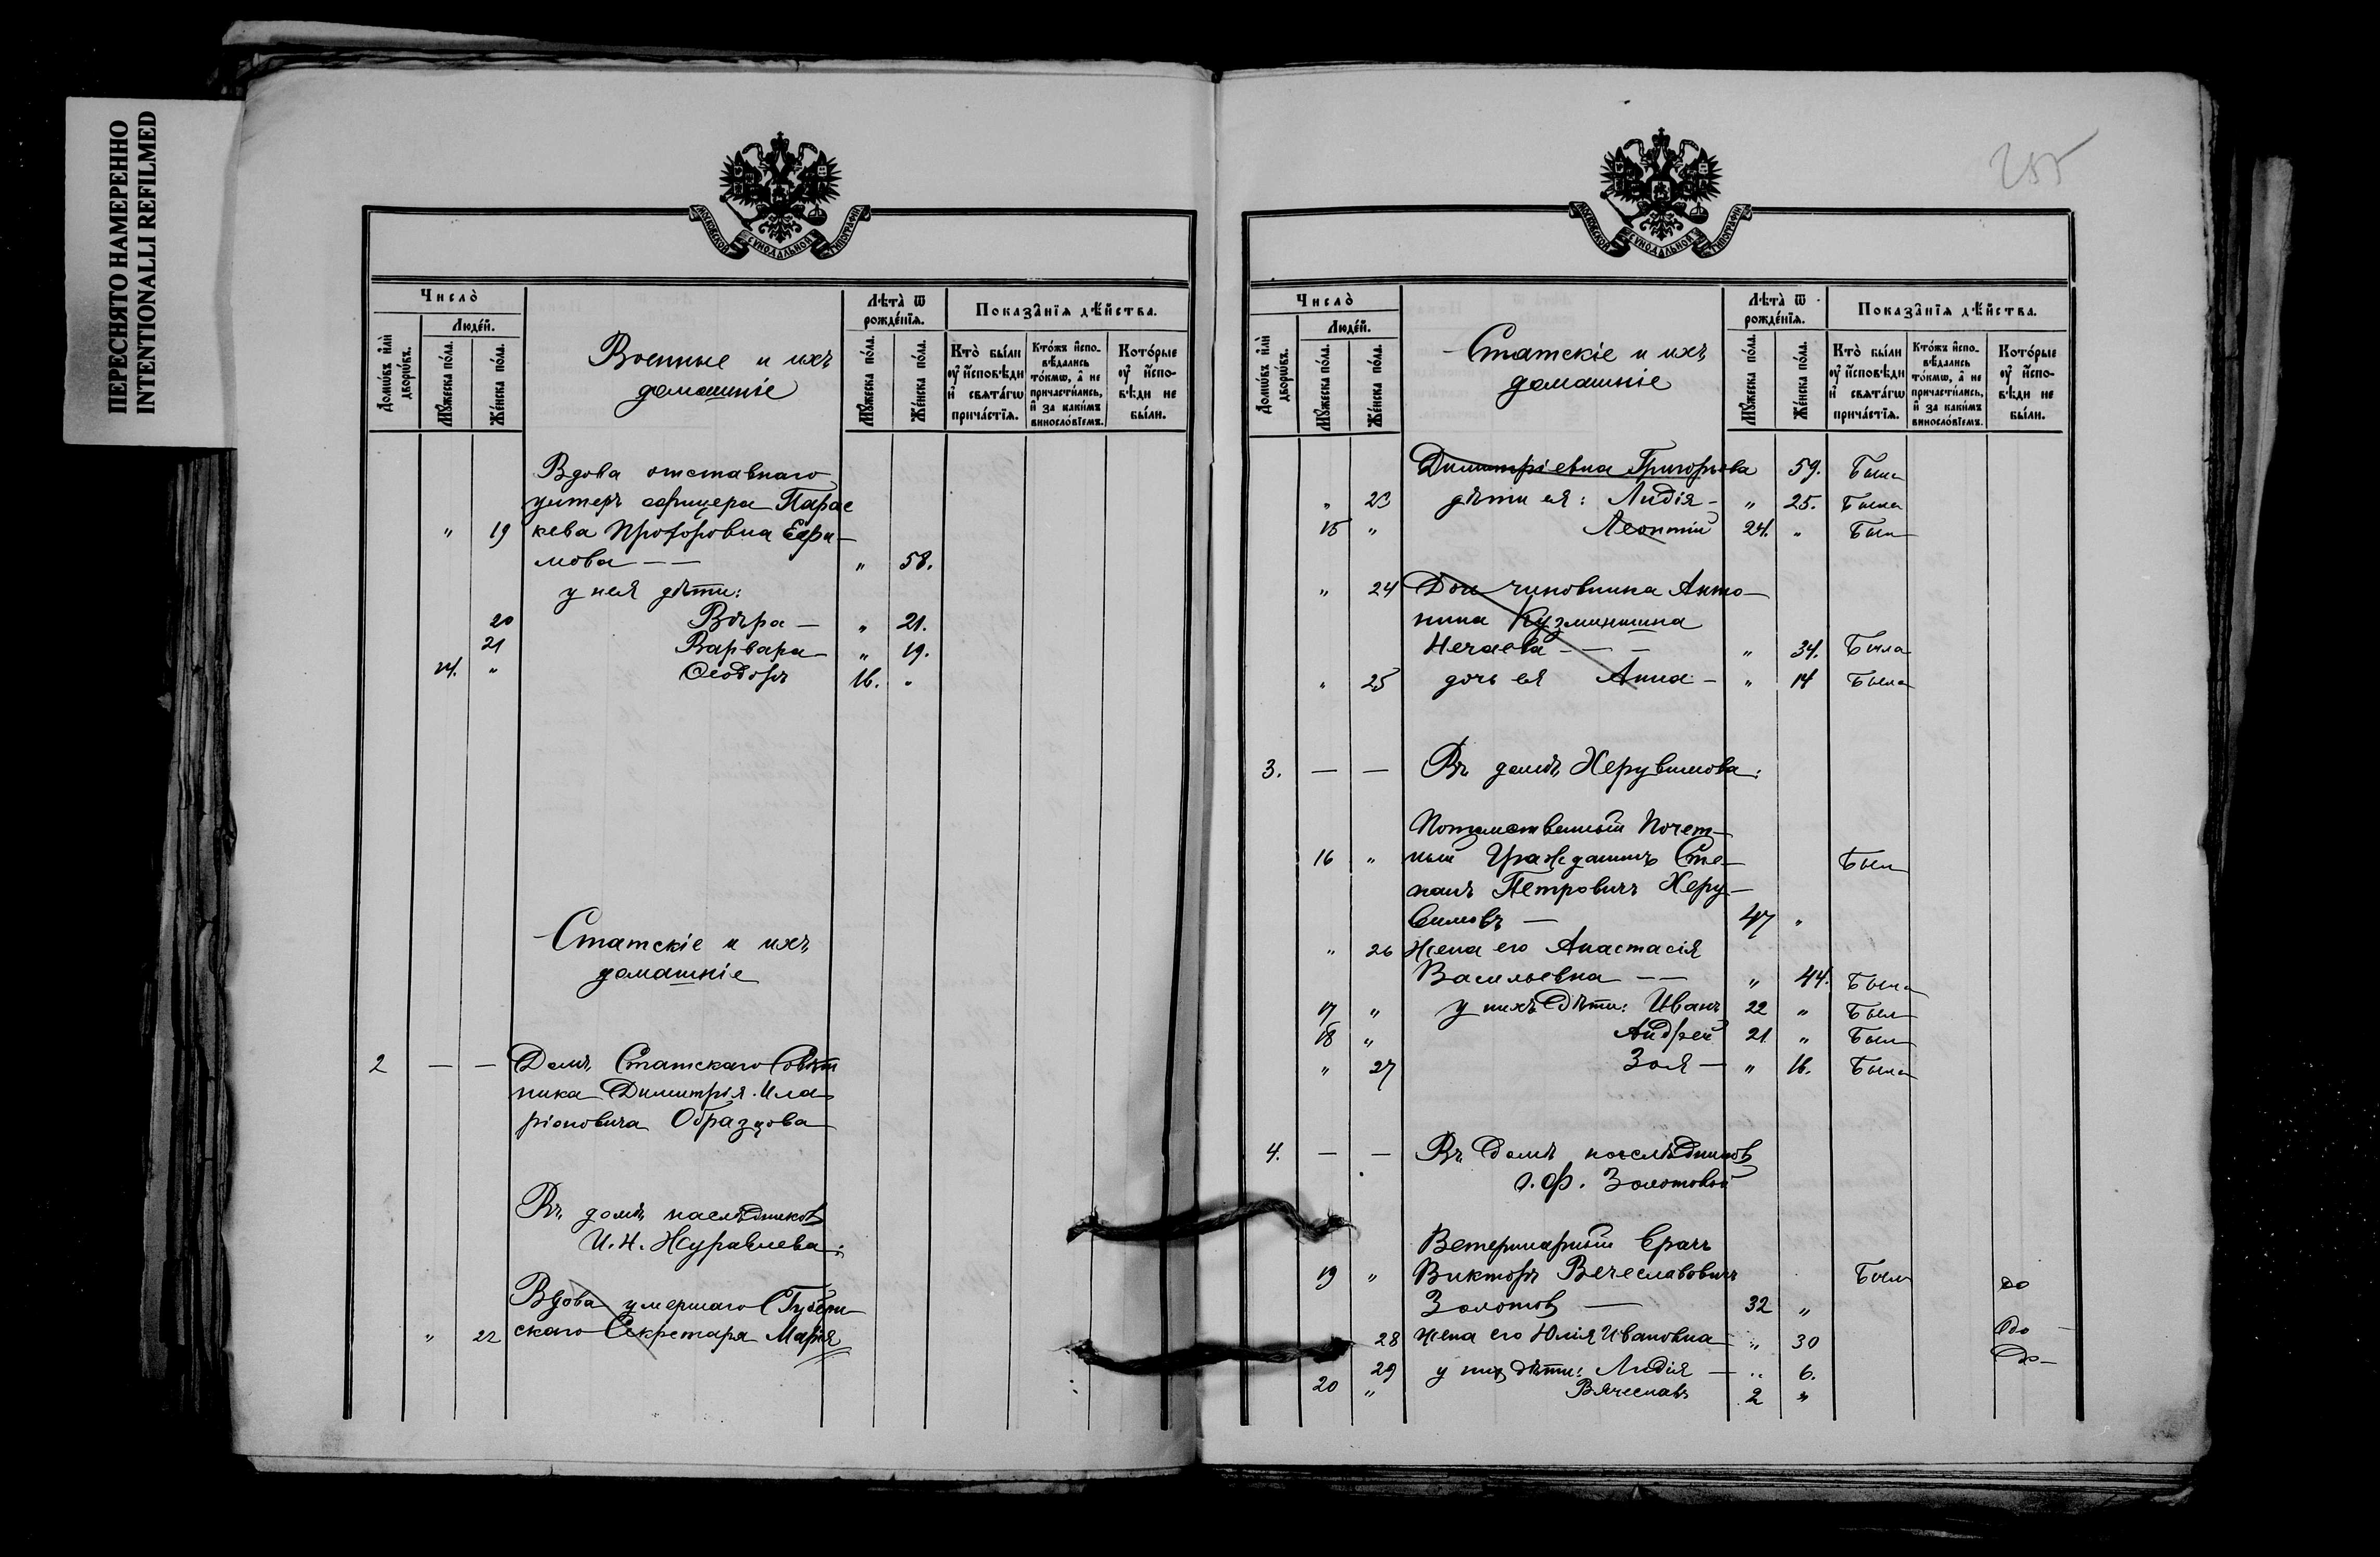 ПЕРЕСНЯТО НАМЕРЕННО
INTENTIONALLI REFILMED
МОСКОВСКОЙ СѴНОДАЛЬНОЙ ТИПОГРАФІИ
Число̀
Домѡ́въ и҆лѝ дворѡ́въ.
Люде́й.
Мꙋ́жеска по́ла.
Же́нска по́ла.
Военные и ихъ
домашніе
Лѣта̀ ѿ рожде́нїѧ.
Мꙋ́жеска по́ла.
Же́нска по́ла.
Показа̑нїѧ дѣ́йства.
Кто̀ бы́ли ᲂу҆ и҆́сповѣди и҆ свѧта́гѡ прича́стїѧ.
Кто́жъ и҆сповѣ́дались то́кмѡ, а҆ не причасти́лись, и҆ за каки́мъ винослѡ́вїемъ.
Кото́рые ᲂу҆ и҆́сповѣди не бы́ли.
Вдова отставнаго
унтеръ офицера Парас
" 19 кева Прохоровна Ефи-
мова — — " 58.
у нея дѣти:
20 Вѣра — " 21.
21 Варвара " 19.
14. " Ѳеодоръ 16. "
Статскіе и ихъ
домашніе
2 — — Домъ Статскаго Совѣт
ника Димитрія Ила
ріоновича Образцова
Въ домѣ наслѣдниковъ
И. Н. Журавлева:
Вдова умершаго Губерн
" 22 скаго Секретаря Марія
255
МОСКОВСКОЙ СѴНОДАЛЬНОЙ ТИПОГРАФІИ
Число̀
Домѡ́въ и҆лѝ дворѡ́въ.
Люде́й.
Мꙋ́жеска по́ла.
Же́нска по́ла.
Статскіе и ихъ
домашніе
Лѣта̀ ѿ рожде́нїѧ.
Мꙋ́жеска по́ла.
Же́нска по́ла.
Показа̑нїѧ дѣ́йства.
Кто̀ бы́ли ᲂу҆ и҆́сповѣди и҆ свѧта́гѡ прича́стїѧ.
Кто́жъ и҆сповѣ́дались то́кмѡ, а҆ не причасти́лись, и҆ за каки́мъ винослѡ́вїемъ.
Кото́рые ᲂу҆ и҆́сповѣди не бы́ли.
Димитріевна Григорьева 59. Была
" 23 дѣти ея: Лидія — " 25. Была
15 " Леонтій 24. " Был
" 24 Дочь чиновника Анто-
нина Кузминишна
Нечаева — — " 34. Была
" 25 дочь ея Анна — " 14 Была
3. — — Въ домѣ Херувимова:
Потомственный Почет-
16 " ный Гражданинъ Сте- Был
панъ Петровичъ Херу-
вимовъ — 47 "
" 26 Жена его Анастасія
Васильевна — — " 44. Была
17 " у нихъ дѣти: Иванъ 22 " Был
18 " Андрей 21 " Был
" 27 Зоя — " 16. Была
4. — — Въ домѣ наслѣдников
О. Ф. Золотовой
Ветеринарный врачъ
19 " Викторъ Вечеславовичъ Был до
Золотов — 32 "
28 жена его Юлія Ивановна " 30 до —
29 у них дѣти: Лидія — " 6. До —
20 " Вячеславъ 2 "